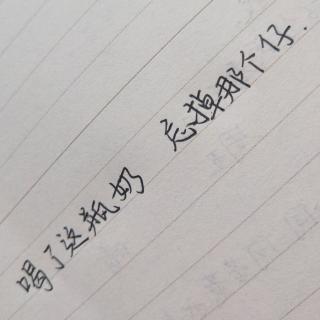 喝了这瓶奶 忘掉那个仔.